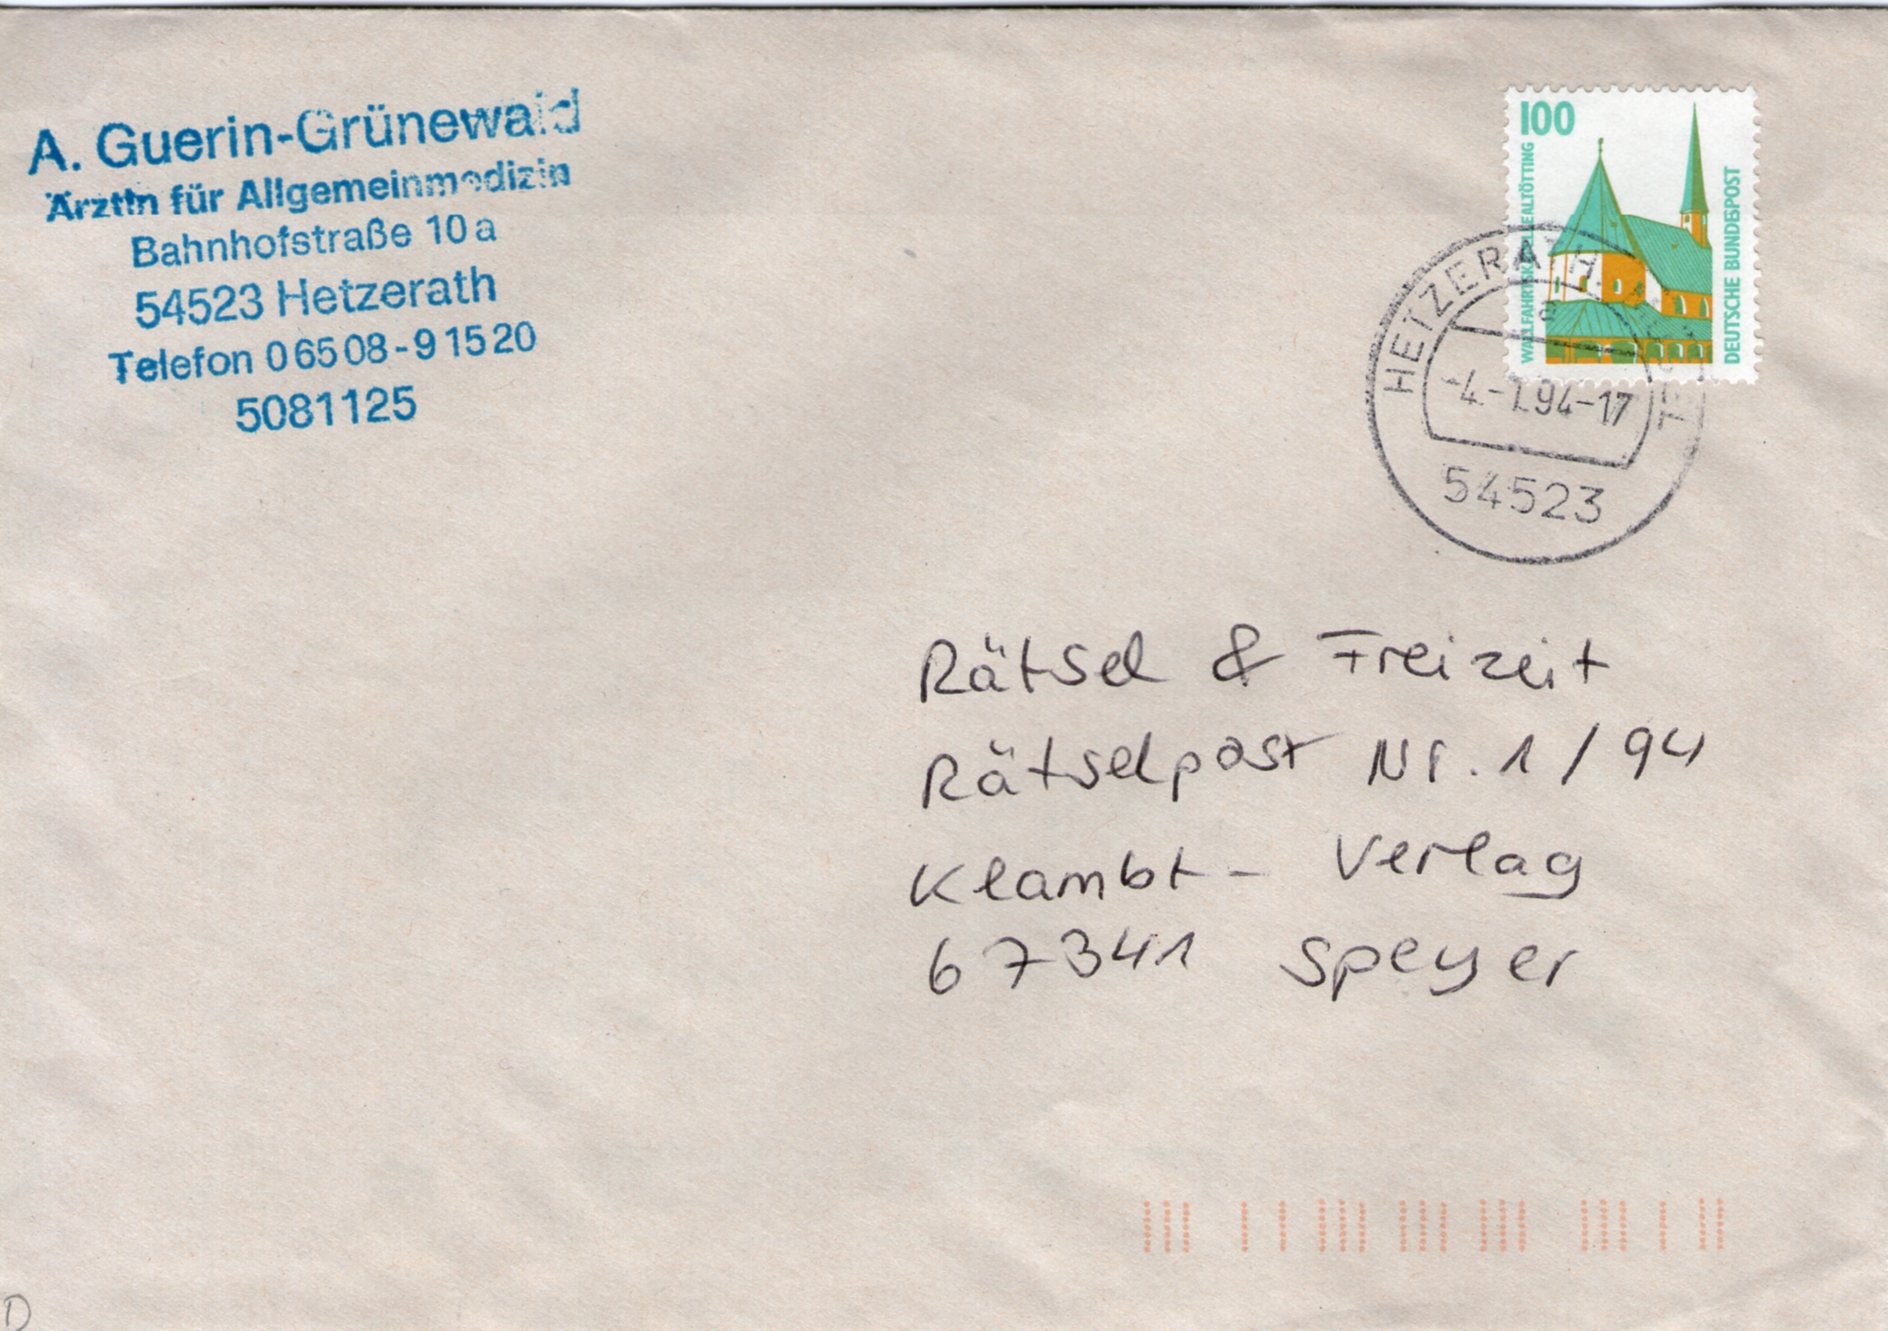 A. Guerin-Grünewald
Ärztin für Allgemeinmedizin
Bahnhofstraße 10 a
54523 Hetzerath
Telefon 0 65 08 - 9 15 20
5081125
100
WALLFAHRTSKAPELLE ALTÖTTING
DEUTSCHE BUNDESPOST
HETZERATH
-4.-1.94-17
54523
Rätsel & Freizeit
Rätselpost Nr. 1/94
Klambt - Verlag
67341 Speyer
D